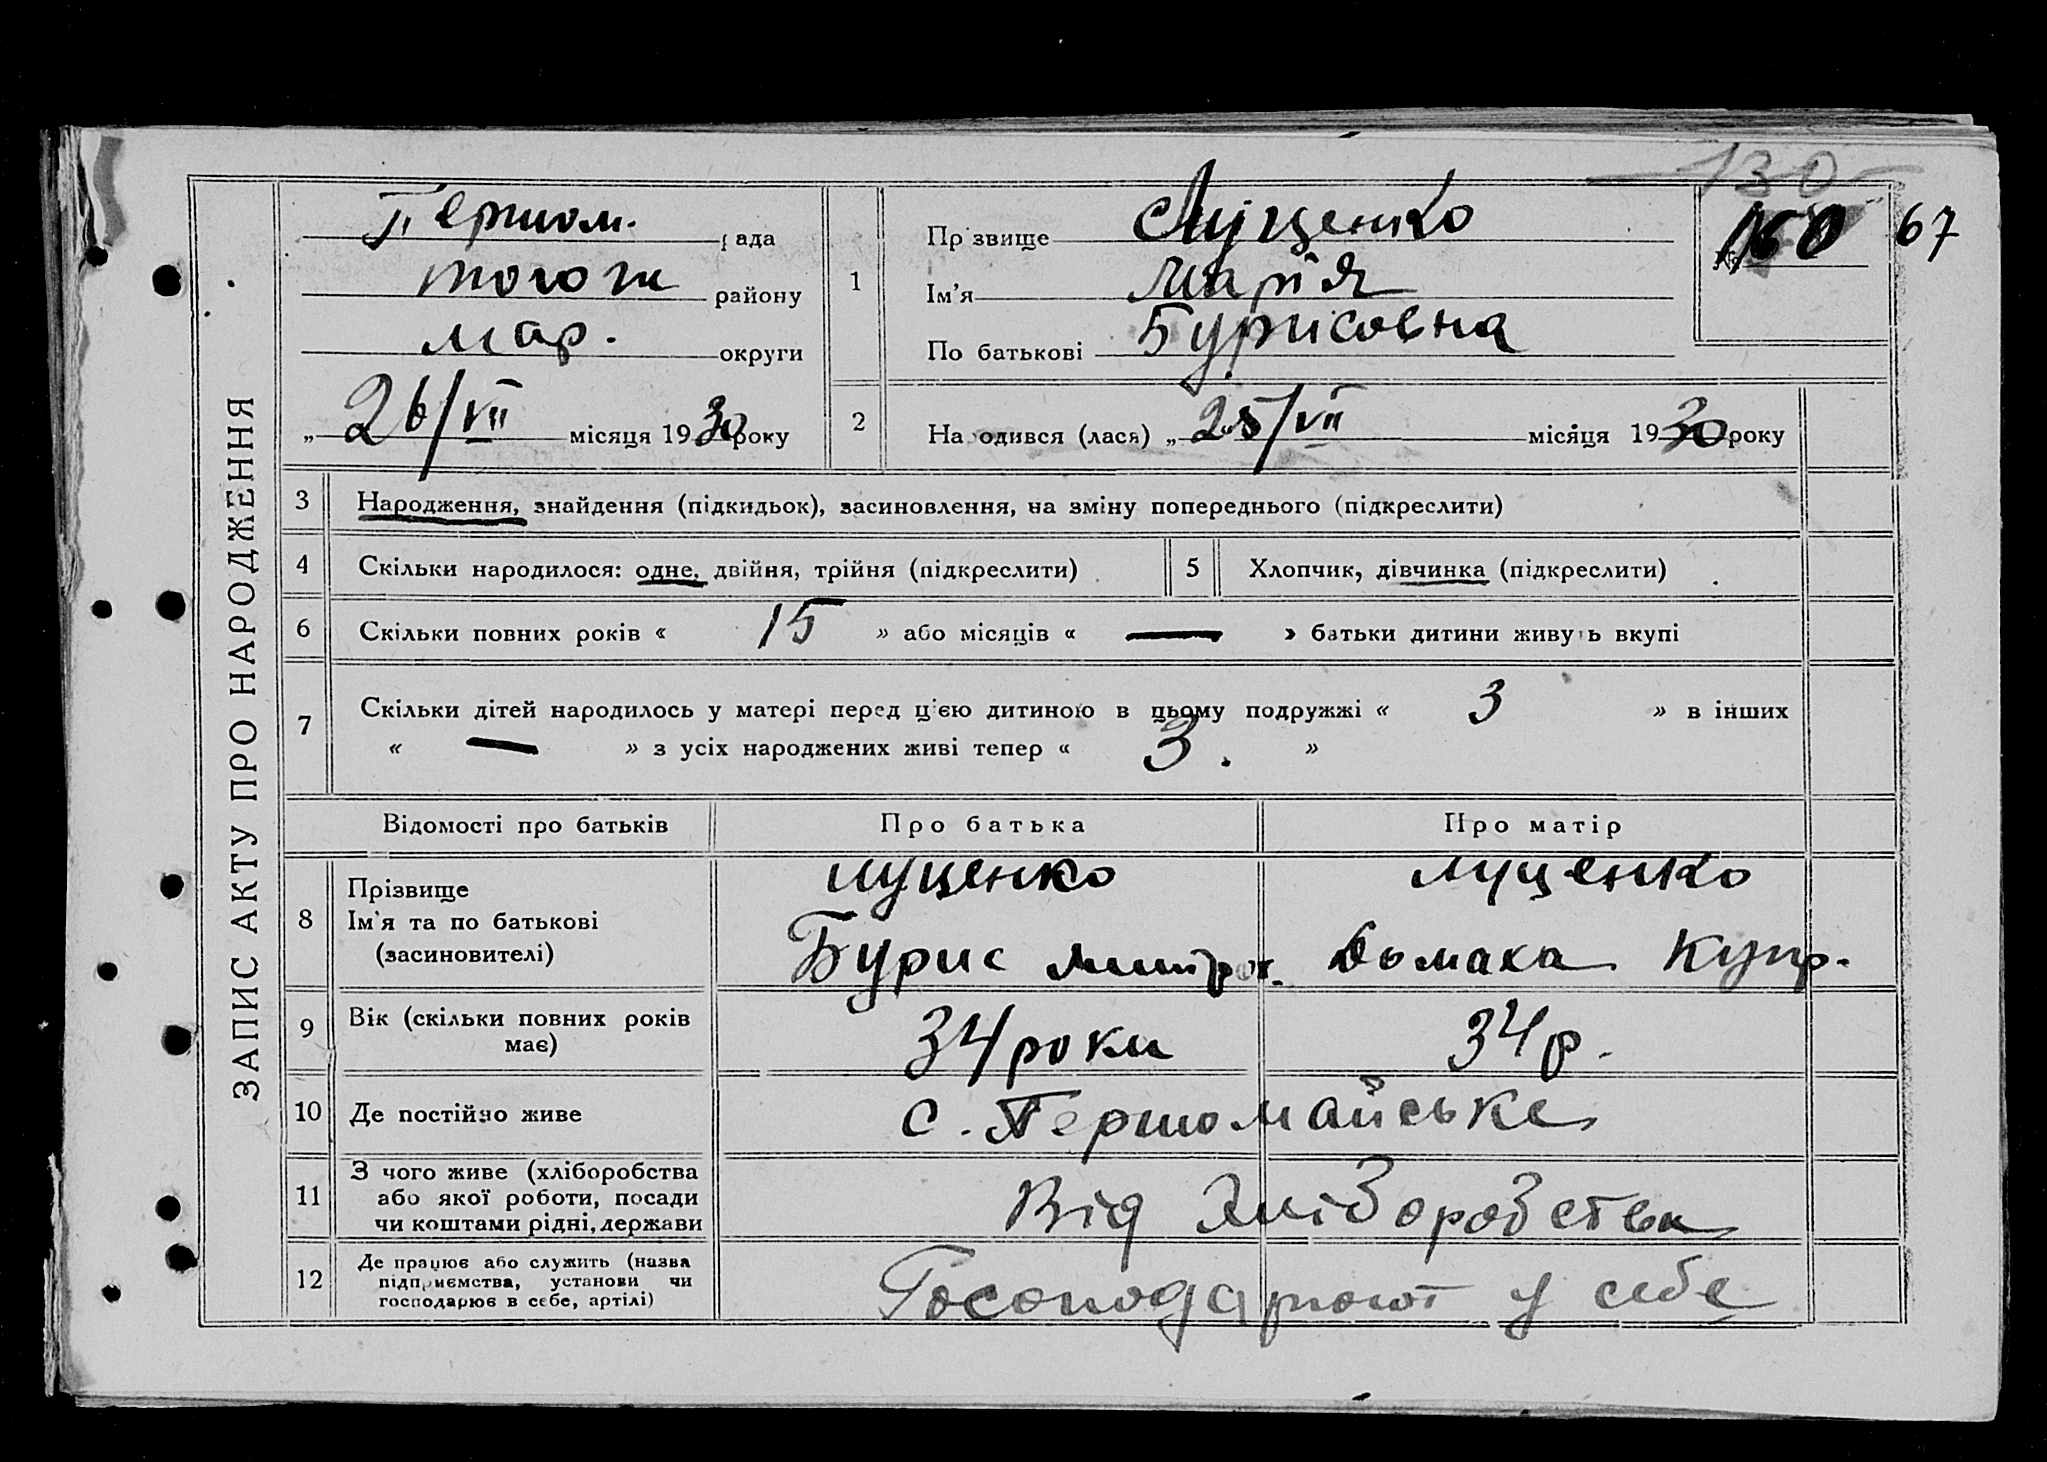 130
160 67
ЗАПИС АКТУ ПРО НАРОДЖЕННЯ
Першом. рада
того ж району
Мар. округи
„ 26/VII місяця 1930 року
1
Прізвище Луценко
Ім'я Марія
По батькові Бурисовна
2 Народився (лася) „ 25/VII місяця 1930 року
3 Народження, знайдення (підкидьок), засиновлення, на зміну попереднього (підкреслити)
4 Скільки народилося: одне, двійня, трійня (підкреслити) 5 Хлопчик, дівчинка (підкреслити)
6 Скільки повних років « 15 » або місяців « — » батьки дитини живуть вкупі
7 Скільки дітей народилось у матері перед цією дитиною в цьому подружжі « 3 » в інших
« — » з усіх народжених живі тепер « 3. »
Відомості про батьків Про батька Про матір
8 Прізвище Луценко Луценко
Ім'я та по батькові
(засиновителі) Бурис Купр.
9 Вік (скільки повних років має) 34 роки 34 р.
10 Де постійно живе с. Першомайське
11 З чого живе (хліборобства
або якої роботи, посади
чи коштами рідні, держави Від хліборобства
12 Де працює або служить (назва
підприємства, установи чи
господарює в себе, артілі) Госоподарюют у себе